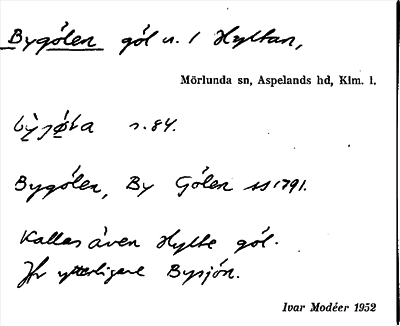 Bygölen göl n. / Hyltan,
Mörlunda sn, Aspelands hd, Klm. l.
s. 84.
Bygölen, By Gölen ss 1791.
Kallas även Hylte göl.
Jfr ytterligare Bysjön.
Ivar Modéer 1952